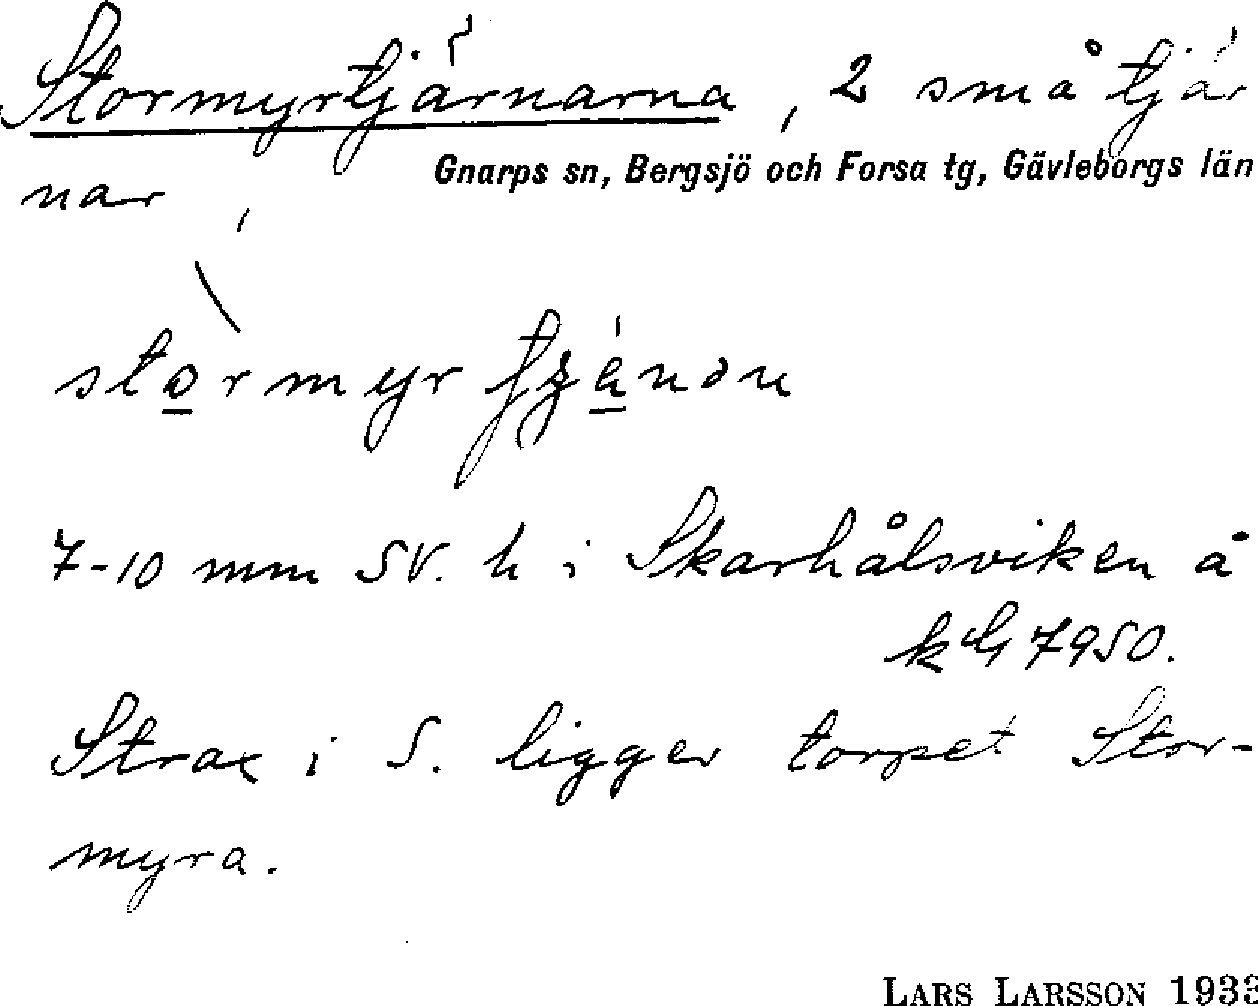 Stormyrtjärnarna, 2 små tjär
Gnarps sn, Bergsjö och Forsa tg, Gävleborgs län
nar
7-10 mm SV. h i Skarhålsviken å
7950.
Strax i S. ligger torpet Stor-
myra.
LARS LARSSON 1933